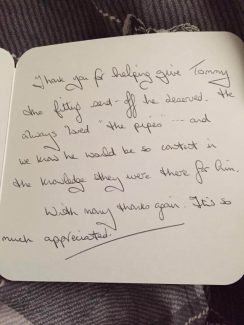 Thank you for helping give Tommy
the fitting send-off he deserved. He
always loved "the pipes" --- and
we know he would be so content in
the knowledge they were there for him.
With many thanks again. It's so
much appreciated.